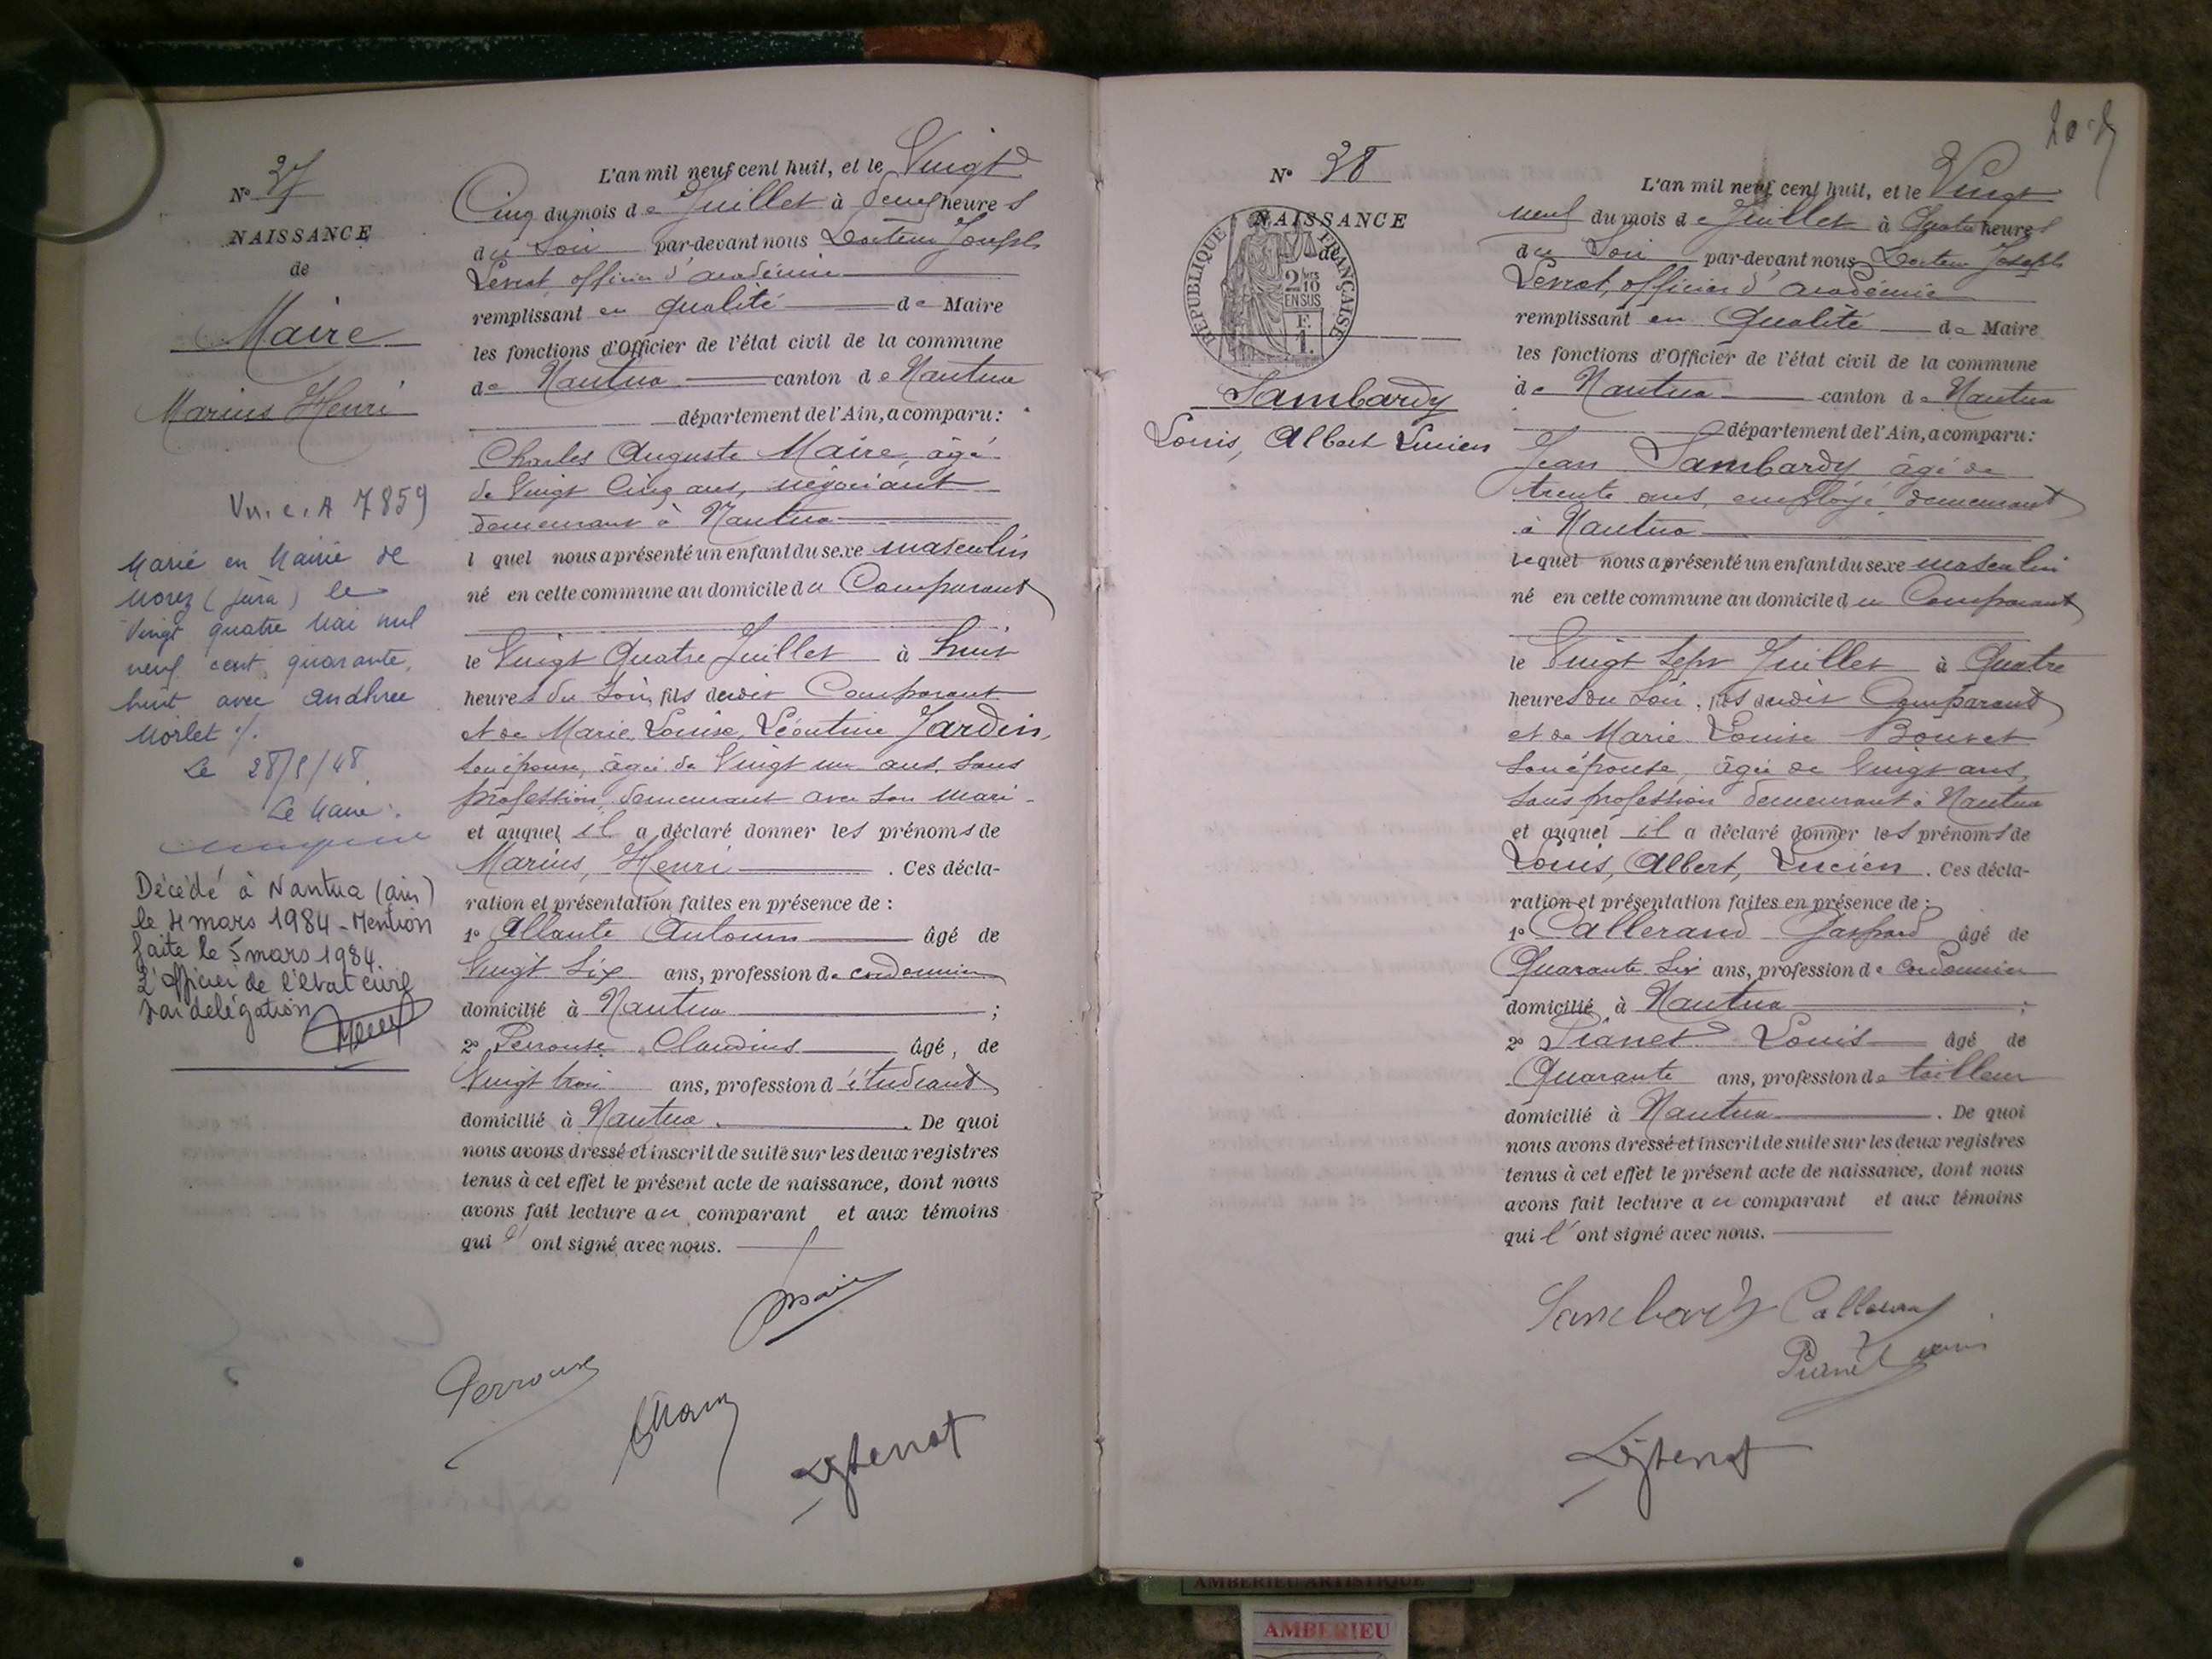 Nº 37
NAISSANCE
de
Maire
Marius Henri
Vu. e. A 7859
Marié en Mairie de
Morez (Jura) le
Vingt quatre Mai mil
neuf cent quarante
huit avec Andhrée
Morlet ./.
Le 28/5/48
Le Maire :
Décédé à Nantua (ain)
le 4 mars 1984 - Mention
faite le 5 mars 1984.
L'officier de l'état civil
par délégation
L'an mil neuf cent huit, et le Vingt
Cinq du mois de Juillet à heures
du Soir par-devant nous Docteur Joseph
Levrat, officier d'académie
remplissant en qualité de Maire
les fonctions d'Officier de l'état civil de la commune
de Nantua canton de Nantua
département de l'Ain, a comparu :
Charles Auguste Maire, âgé
de Vingt Cinq ans, négociant
demeurant à Nantua
l quel nous a présenté un enfant du sexe masculin
né en cette commune au domicile du Comparant
le Vingt Quatre Juillet à huit
heures du Soir, fils dudit Comparant
et de Marie, Louise, Léontine Jardin,
son épouse, âgée de Vingt un ans, sans
profession, demeurant avec son mari -
et auquel il a déclaré donner les prénoms de
Marius, Henri . Ces décla-
ration et présentation faites en présence de :
1º Allante âgé de
Vingt Six ans, profession de cordonnier
domicilié à Nantua ;
2º Perrouse Claudius âgé, de
Vingt trois ans, profession d'étudiant
domicilié à Nantua . De quoi
nous avons dressé et inscrit de suite sur les deux registres
tenus à cet effet le présent acte de naissance, dont nous
avons fait lecture au comparant et aux témoins
qui l' ont signé avec nous.
Maire
Perrouse
Nº 38
NAISSANCE
de
REPUBLIQUE FRANÇAISE
2/10
EN SUS
F.
1.
Sambardy
Louis, Albert Lucien
L'an mil neuf cent huit, et le Vingt
neuf du mois de Juillet à Quatre heures
du Soir par-devant nous Docteur Joseph
Levrat, officier d'académie
remplissant en Qualité de Maire
les fonctions d'Officier de l'état civil de la commune
de Nantua canton de Nantua
département de l'Ain, a comparu :
Jean Sambardy âgé de
trente ans, employé demeurant
à Nantua
lequel nous a présenté un enfant du sexe masculin
né en cette commune au domicile du Comparant
le Vingt Sept Juillet à Quatre
heures du Soir, fils dudit Comparant
et de Marie Louise Bouvet
son épouse, âgée de Vingt ans,
sans profession demeurant à Nantua
et auquel il a déclaré donner les prénoms de
Louis, Albert, Lucien . Ces décla-
ration et présentation faites en présence de :
1º Callerand Gaspard âgé de
Quarante Six ans, profession de cordonnier
domicilié à Nantua ;
2º Pianet Louis âgé de
Quarante ans, profession de tailleur
domicilié à Nantua . De quoi
nous avons dressé et inscrit de suite sur les deux registres
tenus à cet effet le présent acte de naissance, dont nous
avons fait lecture au comparant et aux témoins
qui l' ont signé avec nous.
Sambardy Callerand
Pianet Louis
AMBERIEU ARTISTIQUE
AMBERIEU